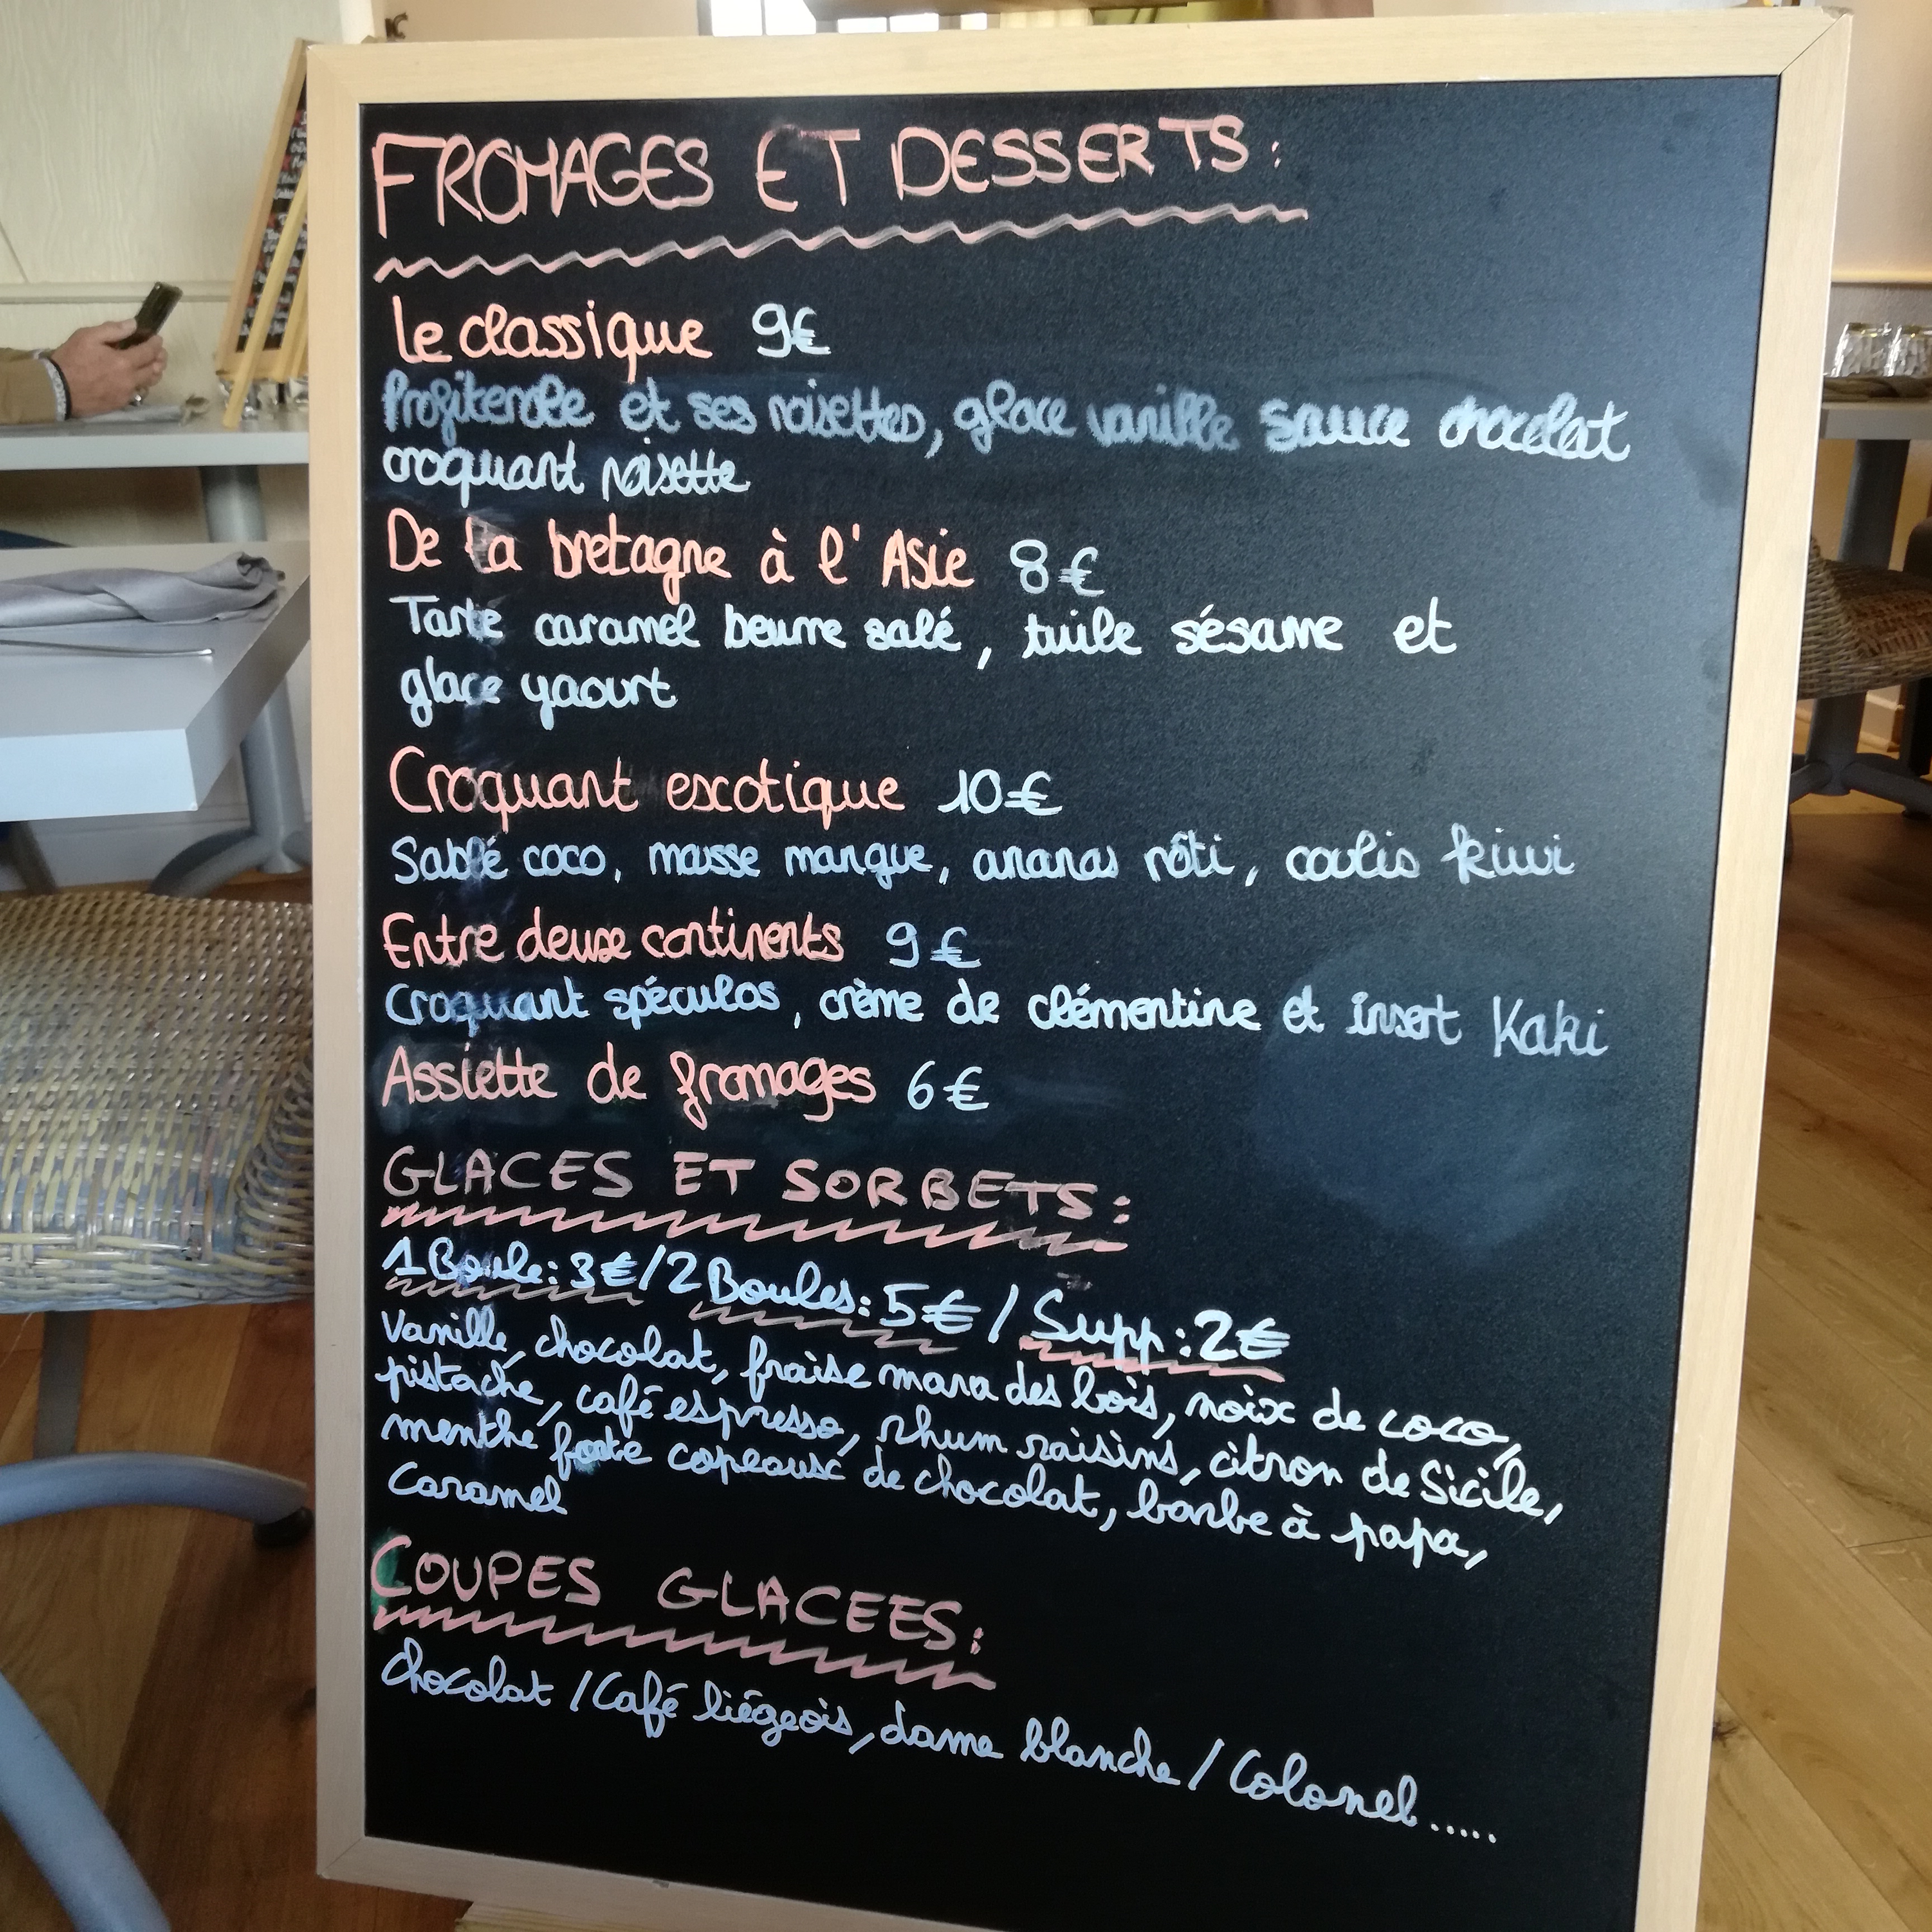 FROMAGES ET DESSERTS :
Le classique 9€
Profiterole et ses noisettes, glace vanille sauce chocolat
croquant noisette
De la bretagne à l'Asie 8€
Tarte caramel beurre salé, tuile sésame et
glace yaourt
Croquant exotique 10€
Sablé coco, mousse mangue, ananas rôti, coulis kiwi
Entre deux continents 9€
Croquant spéculos, crème de clémentine et insert Kaki
Assiette de fromages 6€
GLACES ET SORBETS :
1 Boule : 3€ / 2 Boules : 5€ / Supp : 2€
Vanille, chocolat, fraise mara des bois, noix de coco,
pistache, café espresso, rhum raisins, citron de Sicile,
menthe forte copeaux de chocolat, barbe à papa,
Caramel
COUPES GLACEES :
Chocolat / Café liégeois, dame blanche / Colonel.....